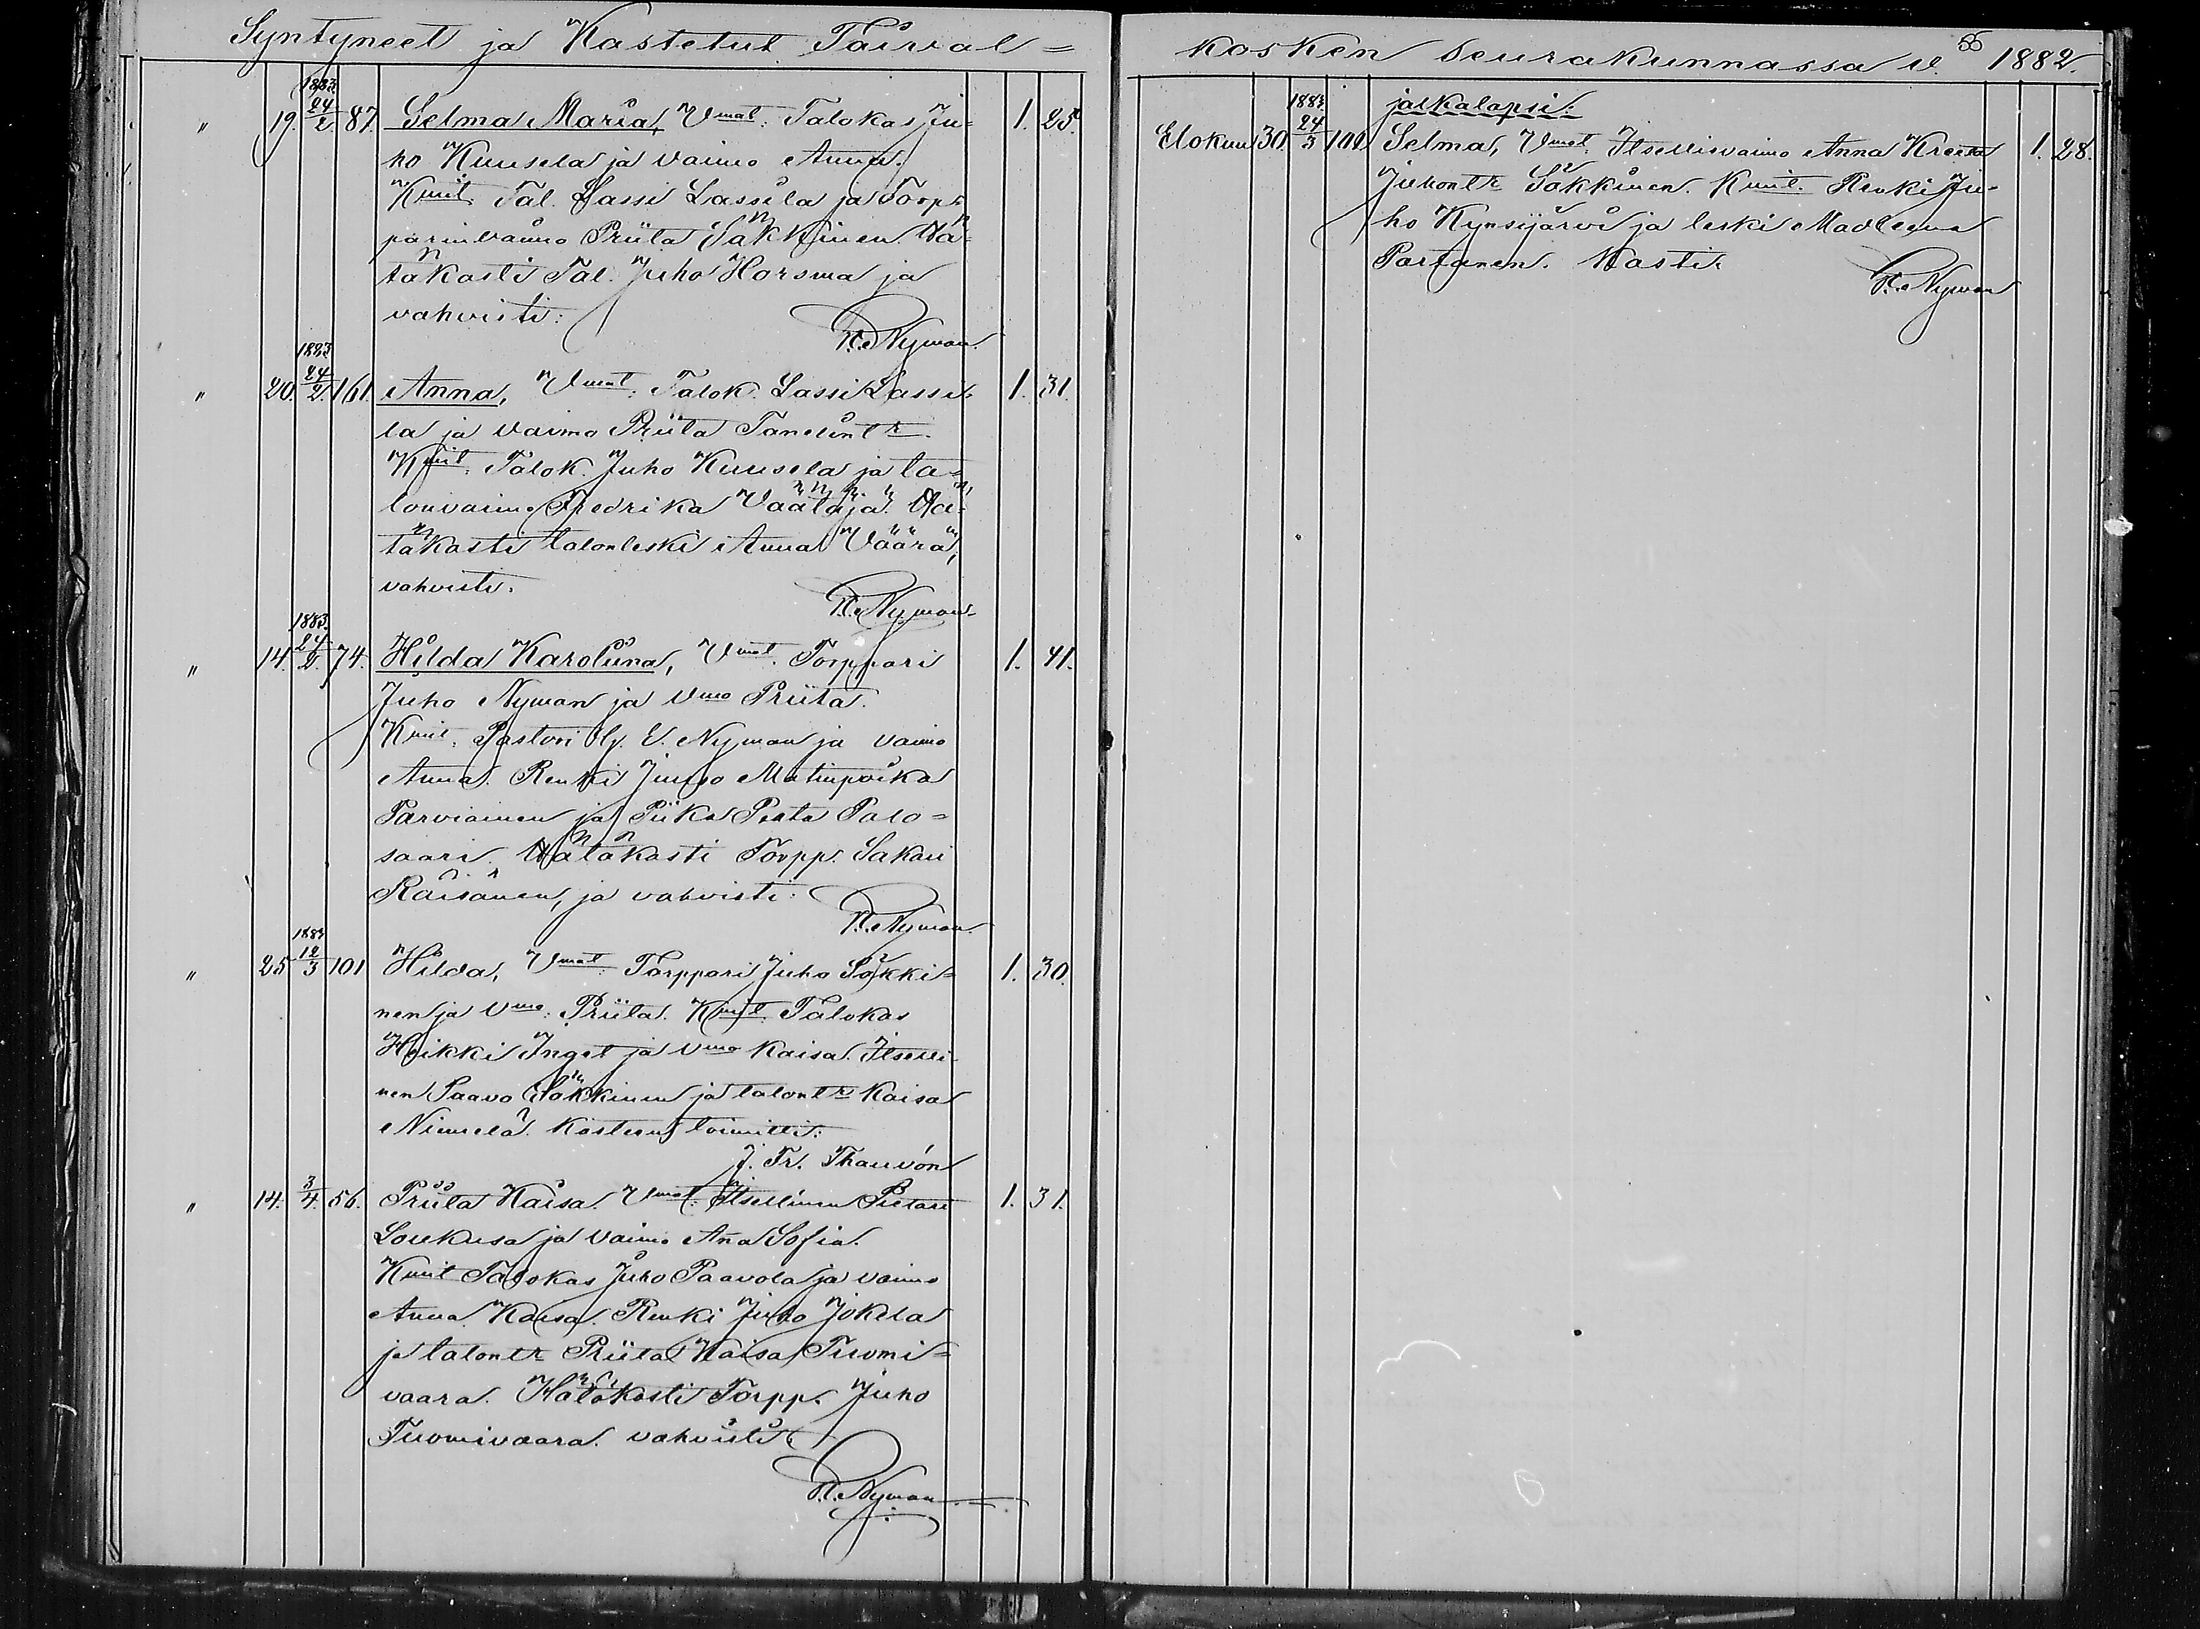 Syntyneet ja Kastetut Taival=
" 19. 1883 24/2 87 Selma Maria, Vmat: Talokas Ju= 1. 25.
ho Kuusela ja vaimo Anna.
Kmit. Tal. Lassi Lassila ja Torp=
parinvaimo Priita Säkkinen. Hä=
täkasti Tal. Juho Horsma ja
vahvisti:
Nyman.
" 20. 1883 24/2. 161. Anna, Vmat: Talok. Lassi Lassi= 1. 31.
la ja vaimo Priita Tanelintr.
Kmit. Talok. Juho Kuusela ja ta=
lonvaimo Fredrika Väätäjä. Hä=
täkasti talonleski Anna Väärä,
vahvisti.
Nyman
" 14. 1883. 24/2. 74. Hilda Karoliina, Vmat. Torppari 1. 41.
Juho Nyman ja Vmo Priita.
Kmit. Pastori E. Nyman ja vaimo
Anna. Renki Juho Matinpoika
Parviainen ja Piika Peata Palo=
saari. Hätäkasti Torpp. Sakari
Räisänen, ja vahvisti:
Nyman.
" 25 1883 12/3 101 Hilda, Vmat. Torppari Juho Säkki= 1. 30.
nen ja Vmo. Priita. Kmit. Talokas
Heikki Inget ja Vmo Kaisa. Itselli=
nen Paavo Säkkinen ja talontr Kaisa
Niemelä. Kasteen toimitti:
J. Fr. Thauvón
" 14. 3/4. 56. Priita Kaisa. Vmat: Itsellinen Pietari 1. 31.
Loukusa ja vaimo Aña Sofia.
Kmit Talokas Juho Paavola ja vaimo
Anna Kaisa. Renki Juho Jokela
ja talontr Priita Kaisa Tuomi=
vaara. Hätäkasti Torpp. Juho
Tuomivaara. vahvisti
Nyman
kosken seurakunnassa v. 1882.
55
jälkalapsi:
Elokuu 30. 1883 24/3 101 Selma, Vmat. Itsellisvaimo Anna Kreeta 1. 28.
Juhontr Säkkinen. Kmit. Renki Ju=
ho Kynsijärvi ja leski Madleena
Partanen. Kasti:
Nyman